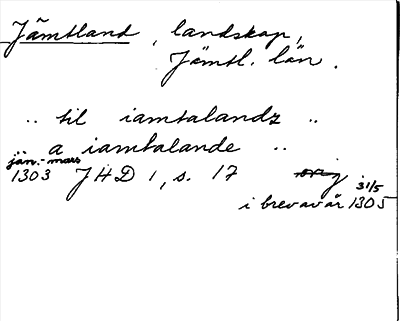 Jämtland, landskap,
Jämtl. län.
.. til iamtalandz ..
a iamtalande ..
jan.-mars
1303 JHD 1, s. 17 orig
31/5
i brev av år 1305